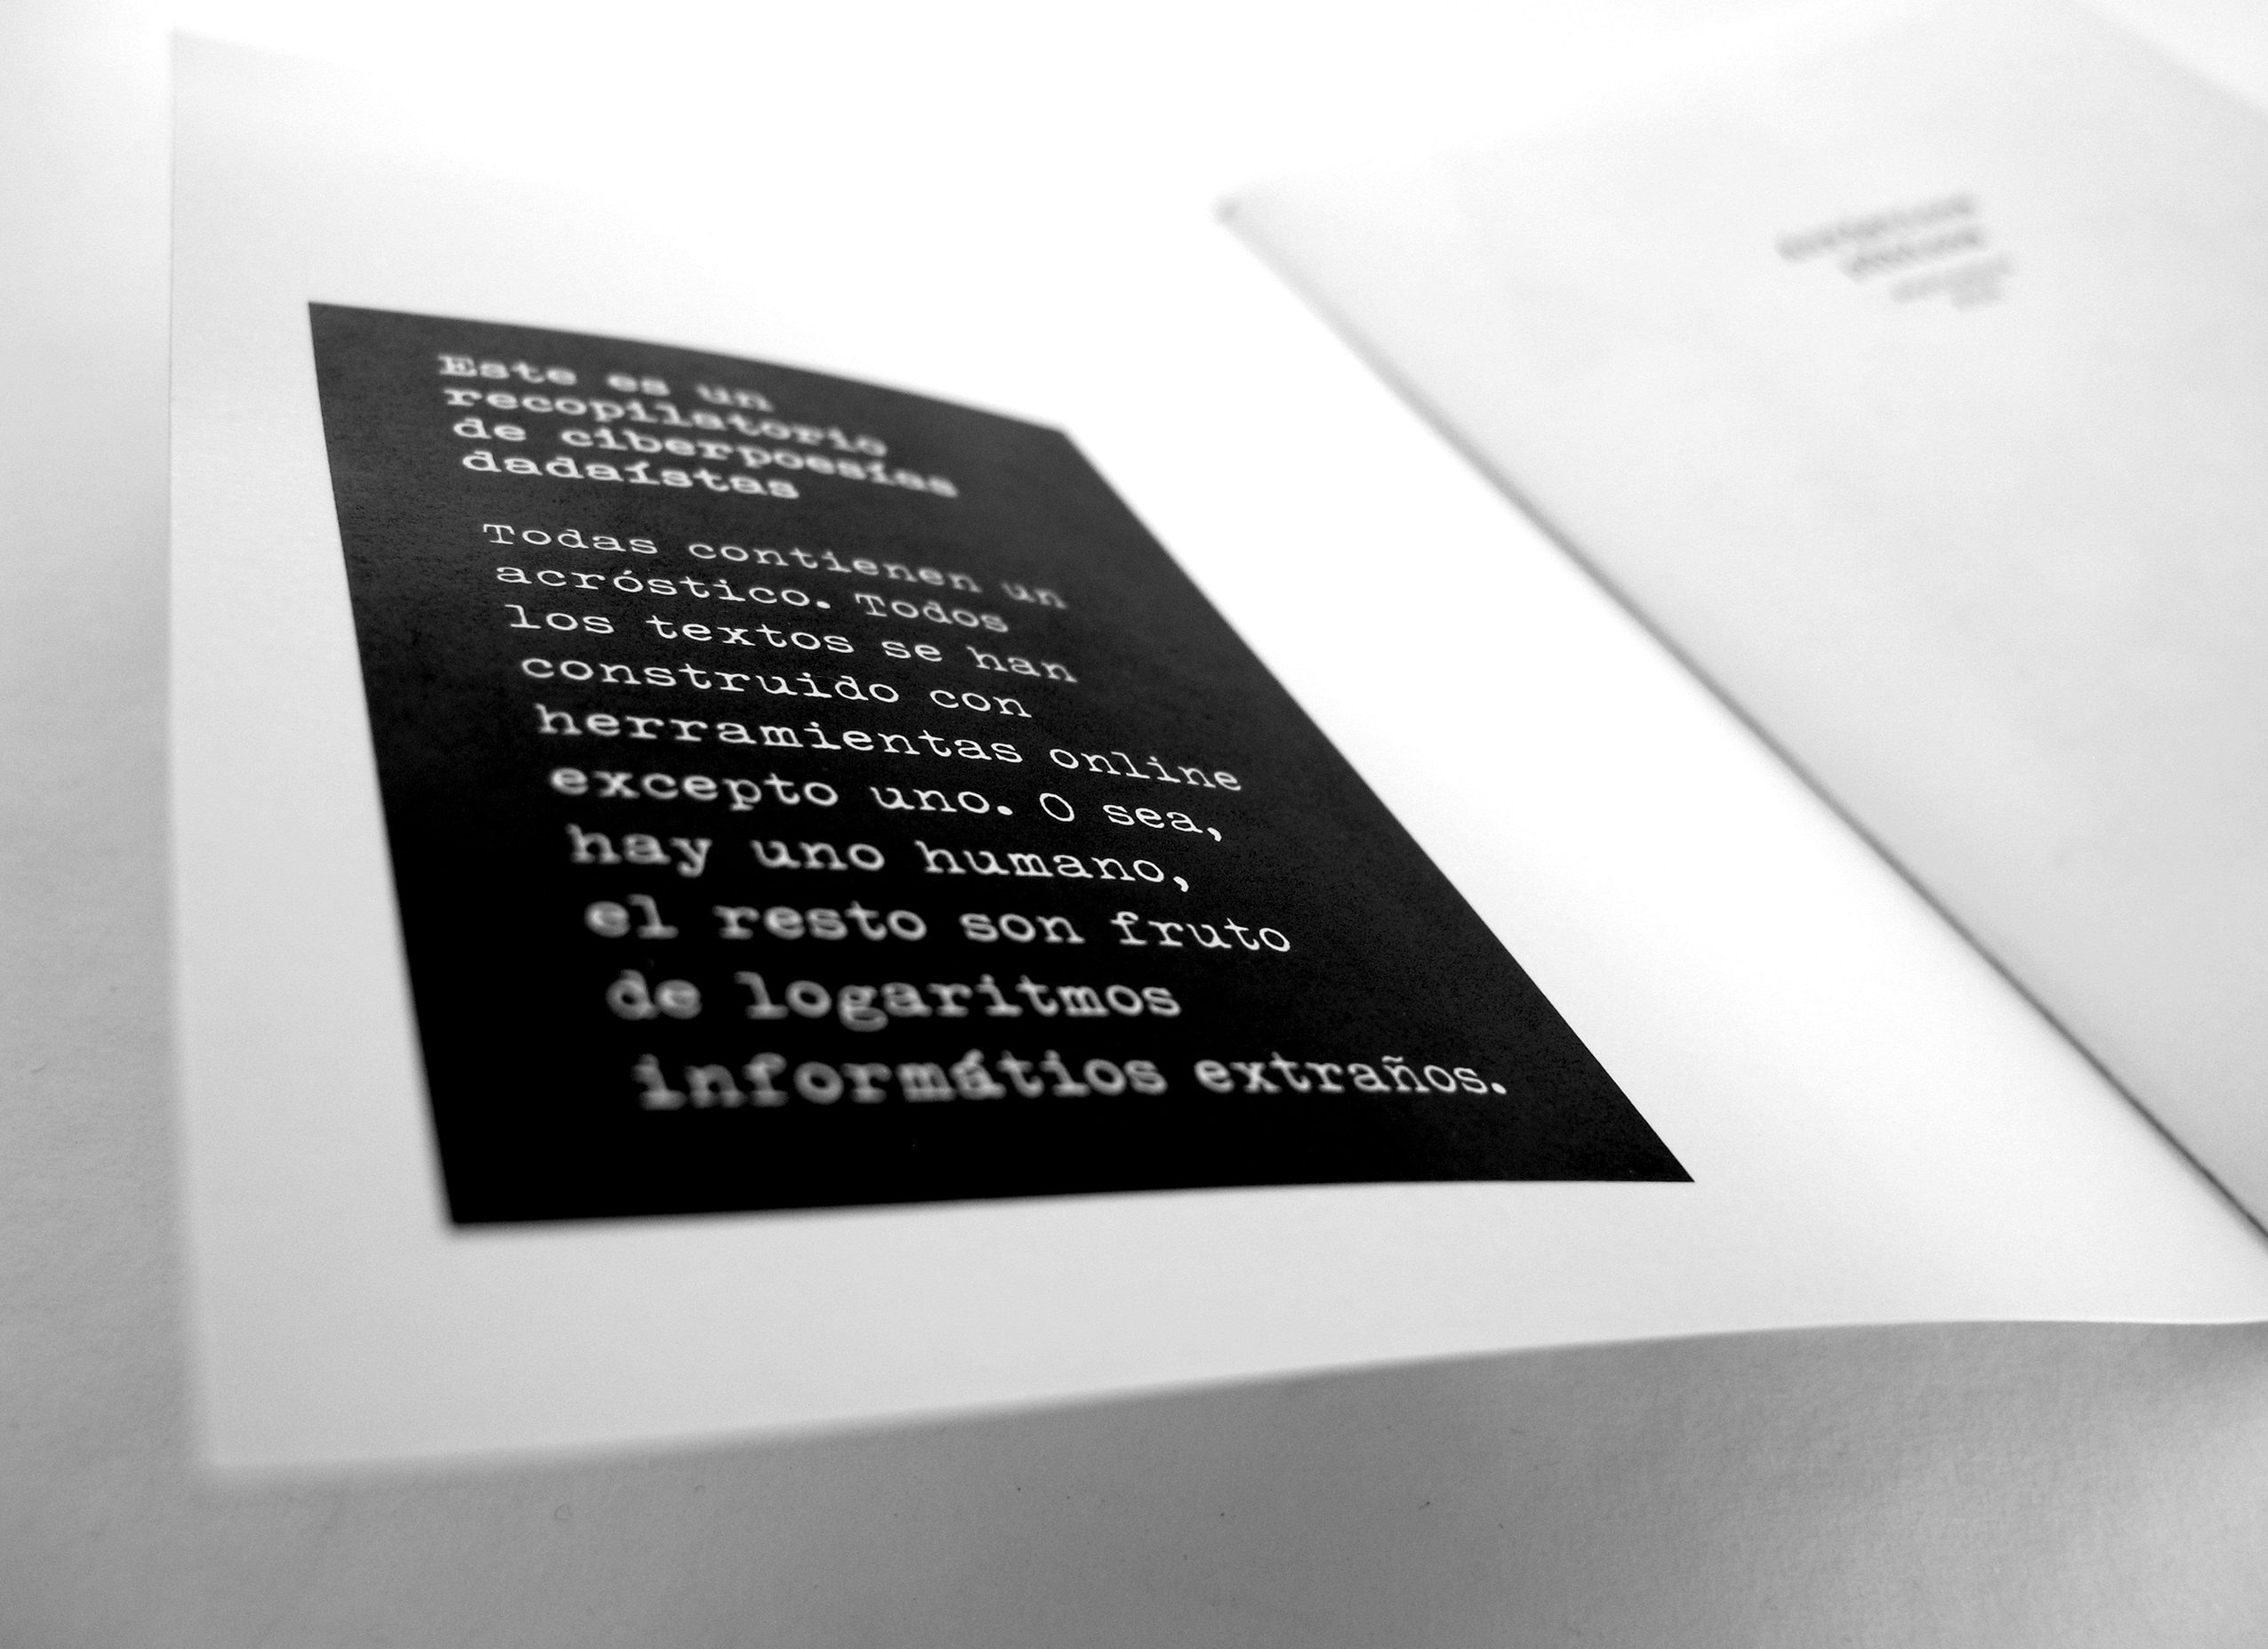 Este es un
recopilatorio
de ciberpoesías
dadaístas
Todas contienen un
acróstico. Todos
los textos se han
construido con
herramientas online
excepto uno. O sea,
hay uno humano,
el resto son fruto
de logaritmos
informátios extraños.